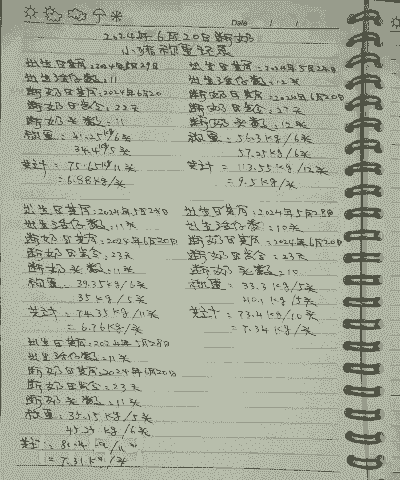 Date / /
2024年6月20日断奶
小猪称重记录
出生日期:2024年5月29日
出生活仔数:11
断奶日期:2024年6月20
断奶日龄:22天
断奶头数:11
称重:41.25kg/6头
34.4kg/5头
共计:75.65kg/11头
=6.88kg/头
出生日期:2024年5月24日
出生活仔数:12头
断奶日期:2024年6月20日
断奶日龄:27天
断奶头数:12头
称重:56.3kg/6头
57.25kg/6头
共计=113.55kg/12头
=9.5kg/头
出生日期:2024年5月28日
出生活仔数:11头
断奶日期:2024年6月20日
断奶日龄:23天
断奶头数:11头
称重:39.35kg/6头
35kg/5头
共计=74.35kg/11头
=6.76kg/头
出生日期:2024年5月28日
出生活仔数:10头
断奶日期:2024年6月20日
断奶日龄:23天
断奶头数:10
称重:33.3kg/5头
40.1kg/5头
共计=73.4kg/10头
=7.34kg/头
出生日期:2024年5月28日
出生活仔数:11头
断奶日期:2024年6月20日
断奶日龄:23天
断奶头数:11头
称重=35.15kg/5头
45.29kg/6头
共计:kg/11头
=7.31kg/头